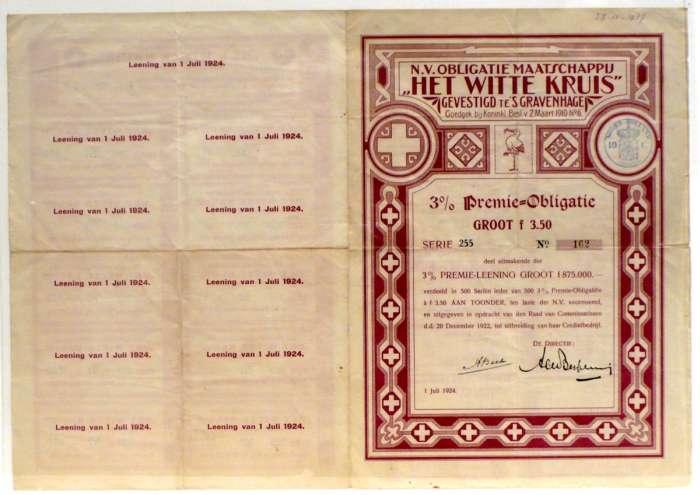 Leening van 1 Juli 1924.
Leening van 1 Juli 1924.
Leening van 1 Juli 1924.
Leening van 1 Juli 1924.
Leening van 1 Juli 1924.
Leening van 1 Juli 1924.
Leening van 1 Juli 1924.
Leening van 1 Juli 1924.
Leening van 1 Juli 1924.
Leening van 1 Juli 1924.
Leening van 1 Juli 1924.
N.V. OBLIGATIE MAATSCHAPPIJ
„HET WITTE KRUIS”
GEVESTIGD TE 'S GRAVENHAGE
Goedgek. bij Koninkl. Besl. v. 2 Maart 1910 No 6.
10 C
3% Premie=Obligatie
GROOT f 3.50
SERIE 255 No 162
deel uitmakende der
3% PREMIE-LEENING GROOT f 875.000.—
verdeeld in 500 Seriën ieder van 500 3% Premie-Obligatiën
à f 3.50 AAN TOONDER, ten laste der N.V. voornoemd,
en uitgegeven in opdracht van den Raad van Commissarissen
d.d. 20 December 1922, tot uitbreiding van haar Credietbedrijf.
DE DIRECTIE:
1 Juli 1924.